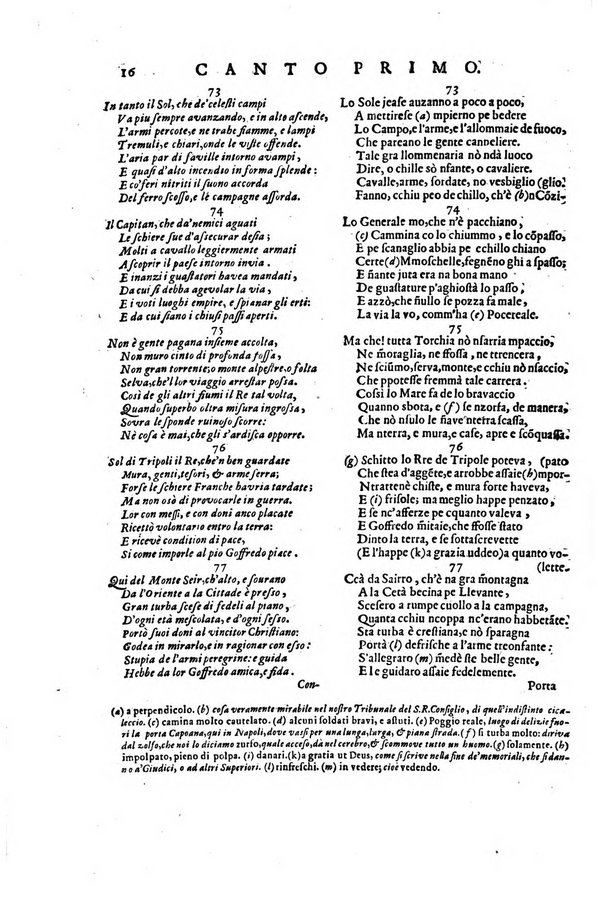 16 CANTO PRIMO.
73
In tanto il Sol, che de'celesti campi
Va piu sempre avanzando, e in alto ascende,
L'armi percote, e ne trahe fiamme, e lampi
Tremuli, e chiari, onde le viste offende.
L'aria par di faville intorno avampi,
E quasi d'alto incendio in forma splende:
E co'feri nitriti il suono accorda
Del ferro scosso, e le campagne assorda.
74
Il Capitan, che da'nemici aguati
Le schiere sue d'assecurar desia;
Molti a cavallo leggiermente armati
A scoprir il paese intorno invia.
E inanzi i guastatori havea mandati,
Da cui si debba agevolar la via,
E i voti luoghi empire, e spianar gli erti:
E da cui siano i chiusi passi aperti.
75
Non è gente pagana insieme accolta,
Non muro cinto di profonda fossa,
Non gran torrente; o monte alpestre, o folta
Selva, che'l lor viaggio arrestar possa.
Così de gli altri fiumi il Re tal volta,
Quando superbo oltra misura ingrossa,
Sovra le sponde ruinoso scorre:
Nè cosa è mai, che gli s'ardisca opporre.
76
Sol di Tripoli il Re, che'n ben guardate
Mura, genti, tesori, & arme serra;
Forse le schiere Franche havria tardate;
Ma non osò di provocarle in guerra.
Lor con messi, e con doni anco placate
Ricettò volontario entro la terra:
E ricevè condition di pace,
Si come imporle al pio Goffredo piace.
77
Qui del Monte Seir, ch'alto, e sourano
Da l'Oriente a la Cittade è presso,
Gran turba scese di fedeli al piano,
D'ogni età mescolata, e d'ogni sesso.
Portò suoi doni al vincitor Christiano:
Godea in mirarlo, e in ragionar con esso:
Stupia de l'armi peregrine: e guida
Hebbe da lor Goffredo amica, e fida.
Con-
73
Lo Sole jease auzanno a poco a poco,
A mettirese (a) mpierno pe bedere
Lo Campo, e l'arme, e l'allommaie de fuoco,
Che pareano le gente canneliere.
Tale gra llommenaria nò ndà luoco
Dire, o chille sò nfante, o cavaliere.
Cavalle, arme, sordate, no vesbiglio (glio.
Fanno, cchiu peo de chillo, ch'è (b)nCõzi-
74
Lo Generale mo, che n'è pacchiano,
(c) Cammina co lo chiummo, e lo cõpasso,
E pe scanaglio abbia pe cchillo chiano
Certe (d) Mmoschelle, fegnēno ghi a spasso;
E ñante juta era na bona mano
De guastature p'aghiostà lo passo,
E azzò, che ñullo se pozza fa male,
La via la vo, comm'ha (e) Pocereale.
75
Ma che! tutta Torchia nò nsarria mpaccio,
Ne moraglia, ne ffossa, ne terrencera,
Ne sciũmo, serva, monte, e cchiu nò nsaccio,
Che ppotesse fremmà tale carrera.
Cossì lo Mare fa de lo bravaccio
Quanno sbota, e (f) se nzorfa, de manera,
Che nò nsulo le ñave nterra scassa,
Ma nterra, e mura, e case, apre e scõquassa.
76
(g) Schitto lo Rre de Tripole poteva, (pato
Che stea d'aggēte, e arrobbe assaie (h)mpor-
Ntrattenè chiste, e mura forte haveva,
E (i) frisole; ma meglio happe penzato,
E se nc'afferze pe cquanto valeva,
E Goffredo mitaie, che ffosse stato
Dinto la terra, e se vozze accordare,
(E l'happe (k)a grazia uddeo)a quanto vo-
(lette.
77
Ccà da Sairro, ch'è na gra mõtagna
A la Cetà becina pe Llevante,
Scesero a rumpe cuollo a la campagna,
Quanta cchiu ncoppa nc'erano habbetãte.
Sta turba è crestiana, e nò sparagna
Portà (l) defrische a l'arme treonfante:
S'allegraro (m) mēdè ste belle gente,
E le guidaro assaie fedelemente.
Porta
(a) a perpendicolo. (b) cosa veramente mirabile nel nostro Tribunale del S.R.Consiglio, di quell'indistinto cica-
leccio. (c) camina molto cautelato. (d) alcuni soldati bravi, e astuti. (e) Poggio reale, luogo di delizie fuo-
ri la porta Capoana, qui in Napoli, dove per una lunga, lurga, & piana strada. (f) si turba molto: deriva
dal zolfo, che noi lo diciamo zurfo, quale acceso, dà nel cerebro, & scommove tutto un huomo. (g) solamente. (h)
impolpato, pieno di polpa. (i) danari. (k) a gratia ut Deus, come si scrive nella fine de'memoriali, che si dan-
no a'Giudici, o ad altri Superiori. (l) rinfreschi. (m) in vedere; cioè vedendo.